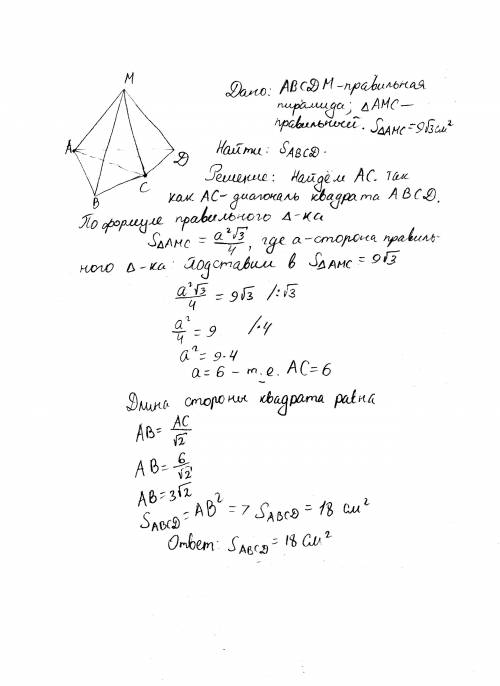 M
A
D
C
B
Дано: ABCDM-правильная
пирамида; △AMC-
правильный. S△AMC=9√3см²
Найти: SABCD.
Решение: Найдём AC. Так
как AC- диагональ квадрата ABCD.
По формуле правильного △-ка
S△AMC = a²√3/4, где а-сторона правиль-
ного △-ка. Подставим в S△AMC = 9√3
a²√3/4 = 9√3 /:√3
a²/4 = 9 /·4
a² = 9·4
a = 6 - т.е. AC = 6
Длина стороны квадрата равна
AB = AC/√2
AB = 6/√2
AB = 3√2
SABCD = AB² => SABCD = 18 см²
Ответ: SABCD = 18 см²